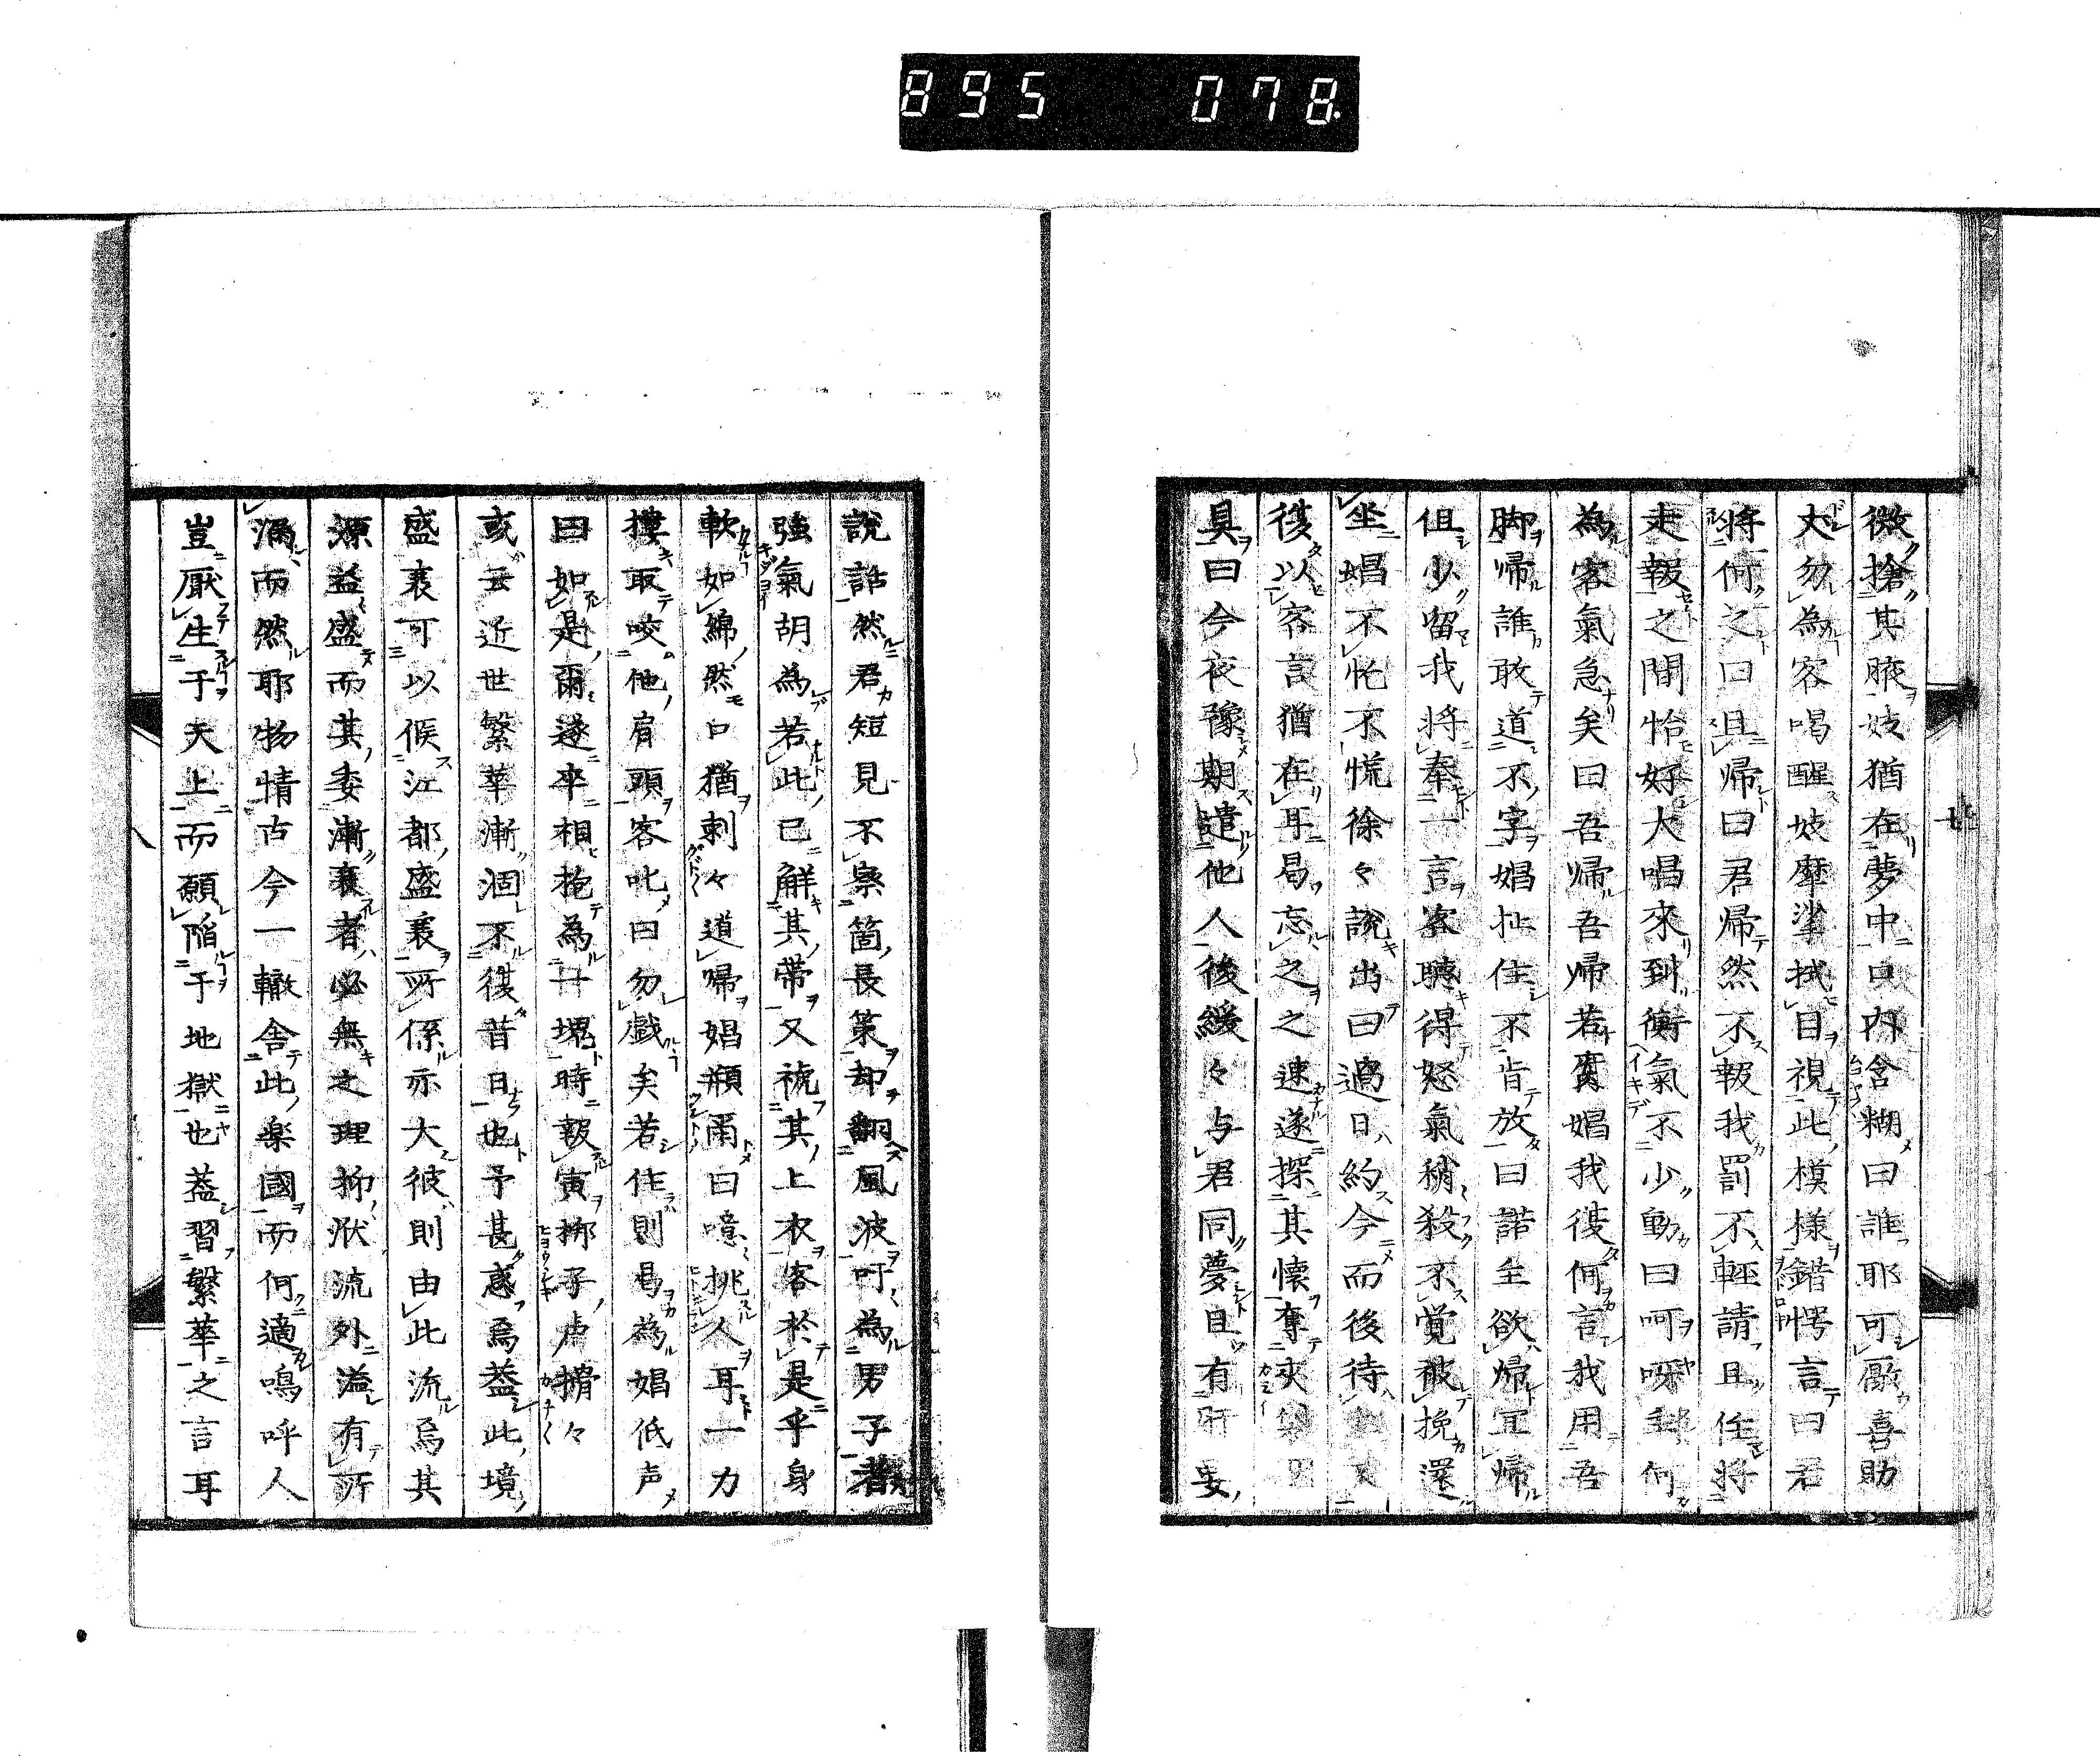 895 078
微搶其腋妓猶在夢中口内含糊曰誰耶可厭喜助
大勿為客喝醒妓摩挲拭目視此模樣錯愕言曰君
将何之曰且帰曰君帰然不報我罰不軽請且住将
走報之間恰好大唱來到衡氣不少動曰呵呀何
為客氣急矣曰吾帰吾帰若實娼我復何言我用吾
脚帰誰敢道不字娼扯住不肯放曰諾主欲帰冝帰
但少留我将奉一言客聴得怒氣稍殺不覚被挽還
坐娼不忙不慌徐々説出曰適日約今而後待
復以客言猶在耳曷忘之之速遂探其懐奪夾
具曰今夜豫期遣他人後緩々与君同夢且有妄
説話然君短見不察箇長策却翻風波吁為男子者
強氣胡為若此已解其帯又褫其上衣客於是乎身
軟如綿然口猶刺々道帰娼頩爾曰噫挑人耳一力
摟取咬他肩頭客叱曰勿戯矣若作則曷為娼低声
曰如是爾遂卒相抱為一塊時報寅梆子声搰々
或云近世繁華漸涸不復昔日也予甚惑焉蓋此境
盛衰可以候江都盛衰所係亦大彼則由此流焉其
源益盛而其委漸衰者必無之理抑洑流外溢有所
涸而然耶物情古今一轍舎此楽國而何適嗚呼人
豈厭生于天上而願陥于地獄也蓋習繁華之言耳